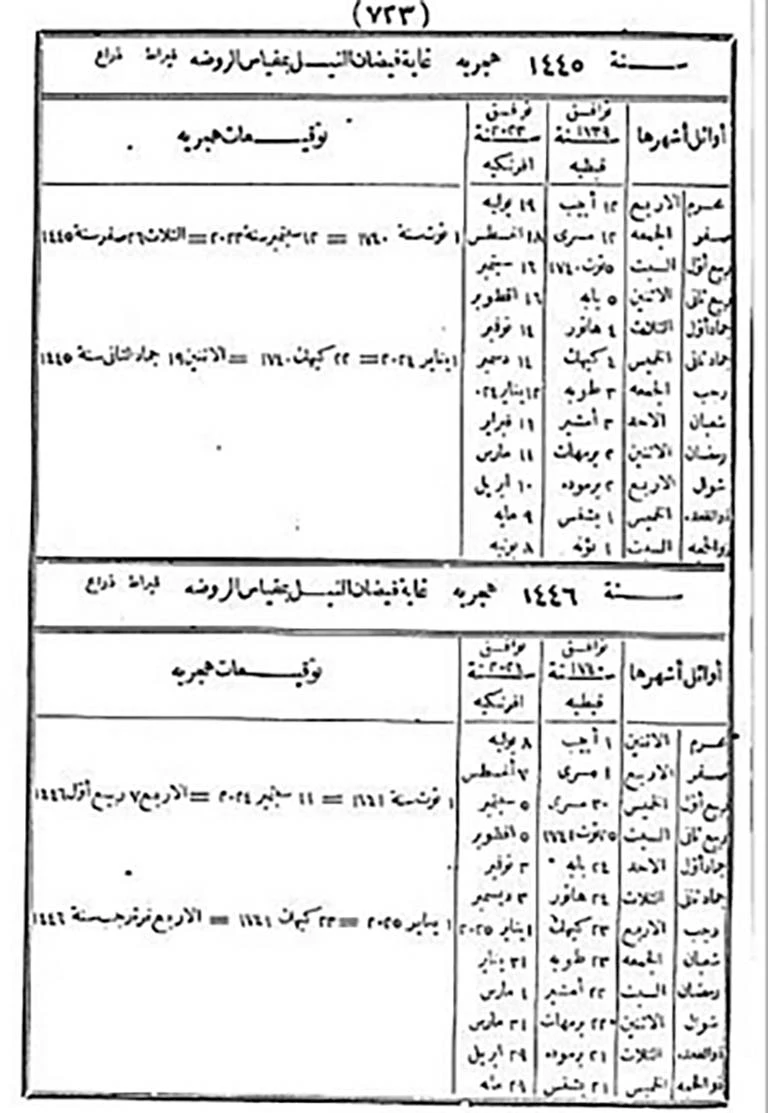 (٧٢٣)
سنة ١٤٤٥ هجريه غاية فيضان النيل بمقياس الروضه قيراط ذراع
أوائل أشهرها توافق سنة ١٧٣٩ قبطيه توافق سنة ٢٠٢٣ افرنكيه توقيعات هجريه
محرم الاربع ١٢ أبيب ١٩ يوليه
صفر الجمعه ١٢ مسرى ١٨ اغسطس ١ توت سنة ١٧٤٠ = ١٢ سبتمبر سنة ٢٠٢٣ = الثلاث ٢٦ صفر سنة ١٤٤٥
ربيع أول السبت ٥ توت ١٧٤٠ ١٦ سبتمبر
ربيع ثانى الاثنين ٥ بابه ١٦ اقطوبر
جماد أول الثلاث ٤ هاتور ١٤ نوفبر
جماد ثانى الخميس ٤ كيهك ١٤ دسمبر ١ يناير ٢٠٢٤ = ٢٢ كيهك ١٧٤٠ = الاثنين ١٩ جماد الثانى سنة ١٤٤٥
رجب الجمعه ٣ طوبه ١٢ يناير ٢٤
شعبان الاحد ٣ أمشير ١١ فبراير
رمضان الاثنين ٢ برمهات ١١ مارس
شوال الاربع ٢ برموده ١٠ ابريل
ذوالقعده الخميس ١ بشنس ٩ مايه
ذوالحجه السبت ١ بؤنه ٨ يونيه
سنة ١٤٤٦ هجريه غاية فيضان النيل بمقياس الروضه قيراط ذراع
أوائل أشهرها توافق سنة ١٧٤٠ قبطيه توافق سنة ٢٠٢٤ افرنكيه توقيعات هجريه
محرم الاثنين ١ أبيب ٨ يوليه
صفر الاربع ١ مسرى ٧ أغسطس
ربيع أول الخميس ٣٠ مسرى ٥ سبتمبر ١ توت سنة ١٧٤١ = ١١ سبتمبر ٢٠٢٤ = الاربع ٧ ربيع أول ١٤٤٦
ربيع ثانى السبت ٢٥ توت ١٧٤١ ٥ اقطوبر
جماد أول الاحد ٢٤ بابه ٣ نوفبر
جماد ثانى الثلاث ٢٤ هاتور ٣ ديسمبر
رجب الاربع ٢٣ كيهك ١ يناير ٢٠٢٥ ١ يناير ٢٠٢٥ = ٢٣ كيهك ١٧٤١ = الاربع غرة رجب سنة ١٤٤٦
شعبان الجمعه ٢٣ طوبه ٣١ يناير
رمضان السبت ٢٢ أمشير ١ مارس
شوال الاثنين ٢٢ برمهات ٣١ مارس
ذوالقعده الثلاث ٢١ برموده ٢٩ ابريل
ذوالحجه الخميس ٢١ بشنس ٢٩ مايه